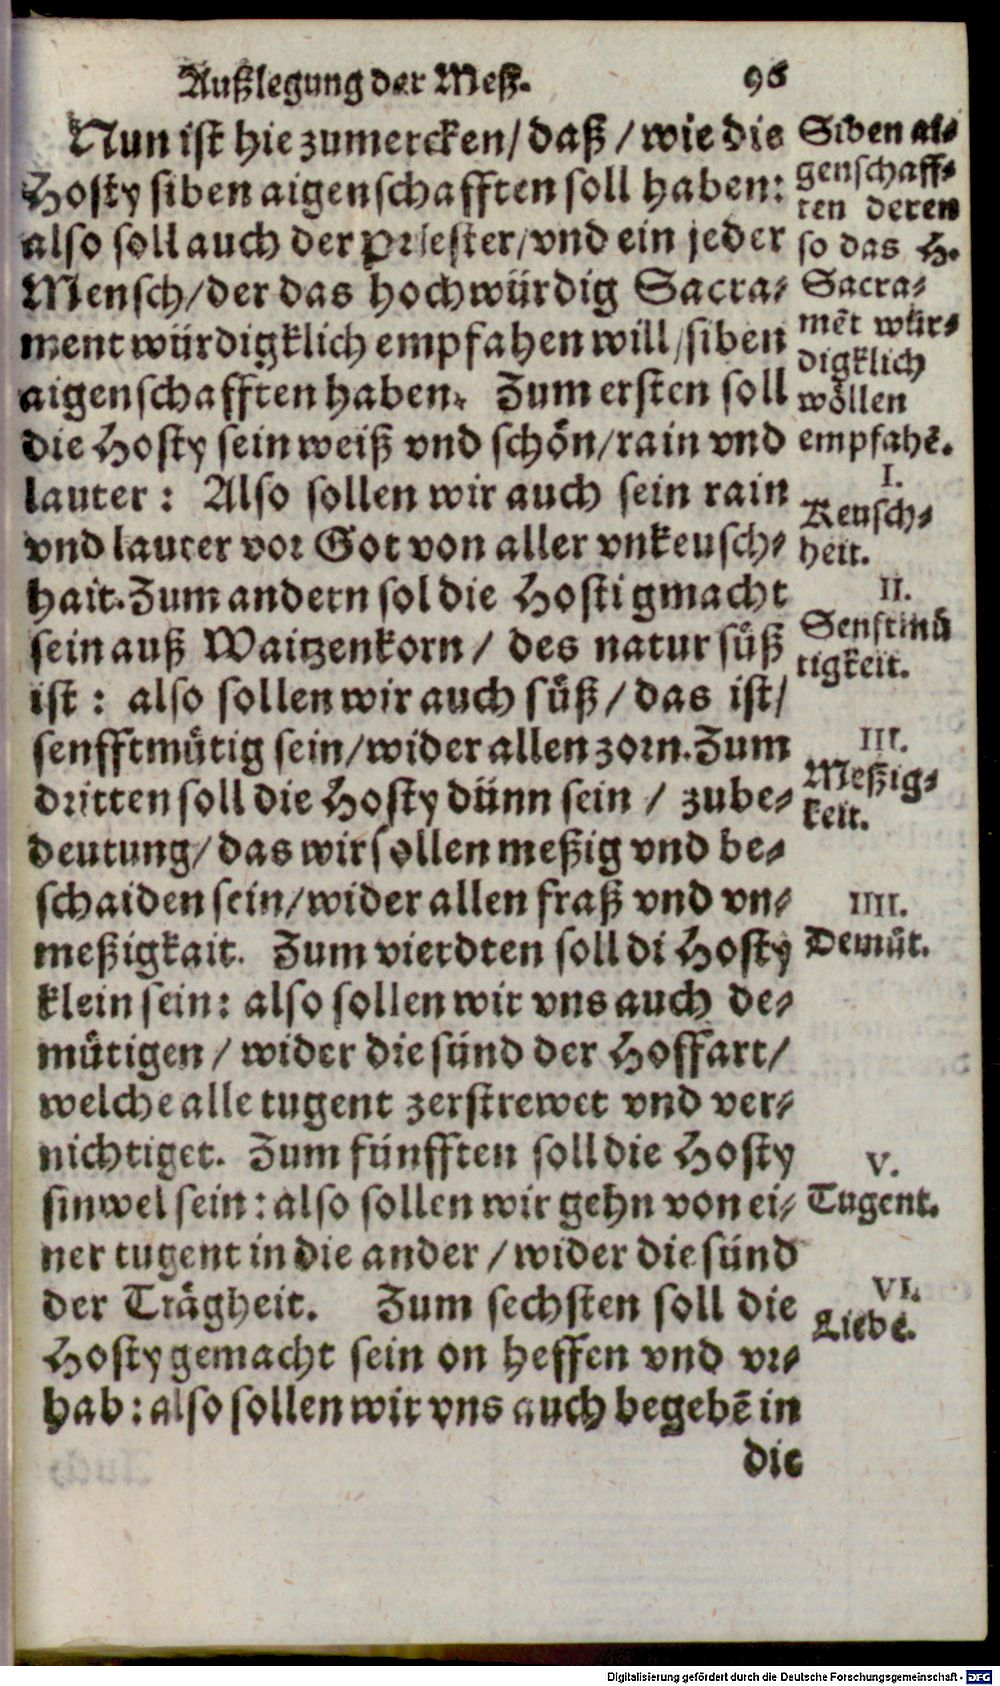 Außlegung der Meß. 96
Nun ist hie zumercken/ daß / wie die
Hosty siben aigenschafften soll haben:
also soll auch der Priester/ vnd ein jeder
Mensch/ der das hochwürdig Sacra-
ment würdigklich empfahen will/ siben
aigenschafften haben. Zum ersten soll
die Hosty sein weiß vnd schön/ rain vnd
lauter: Also sollen wir auch sein rain
vnd lauter vor Got von aller vnkeusch-
hait. Zum andern sol die Hosti gmacht
sein auß Waitzenkorn / des natur süß
ist: also sollen wir auch süß / das ist/
senfftmütig sein/ wider allen zorn. Zum
dritten soll die Hosty dünn sein / zube-
deutung/ das wir sollen meßig vnd be-
schaiden sein/ wider allen fraß vnd vn-
meßigkait. Zum vierdten soll di Hosty
klein sein: also sollen wir vns auch de-
mütigen / wider die sünd der Hoffart/
welche alle tugent zerstrewet vnd ver-
nichtiget. Zum fünfften soll die Hosty
sinwel sein: also sollen wir gehn von ei-
ner tugent in die ander / wider die sünd
der Trägheit. Zum sechsten soll die
Hosty gemacht sein on heffen vnd vr-
hab: also sollen wir vns auch begebē in
die
Siben ai-
genschaff-
ten deren
so das H.
Sacra-
mēt wür-
digklich
wöllen
empfahē.
I.
Keusch-
heit.
II.
Senftmü
tigkeit.
III.
Meßig-
keit.
IIII.
Demüt.
V.
Tugent.
VI.
Liebe.
Digitalisierung gefördert durch die Deutsche Forschungsgemeinschaft - DFG